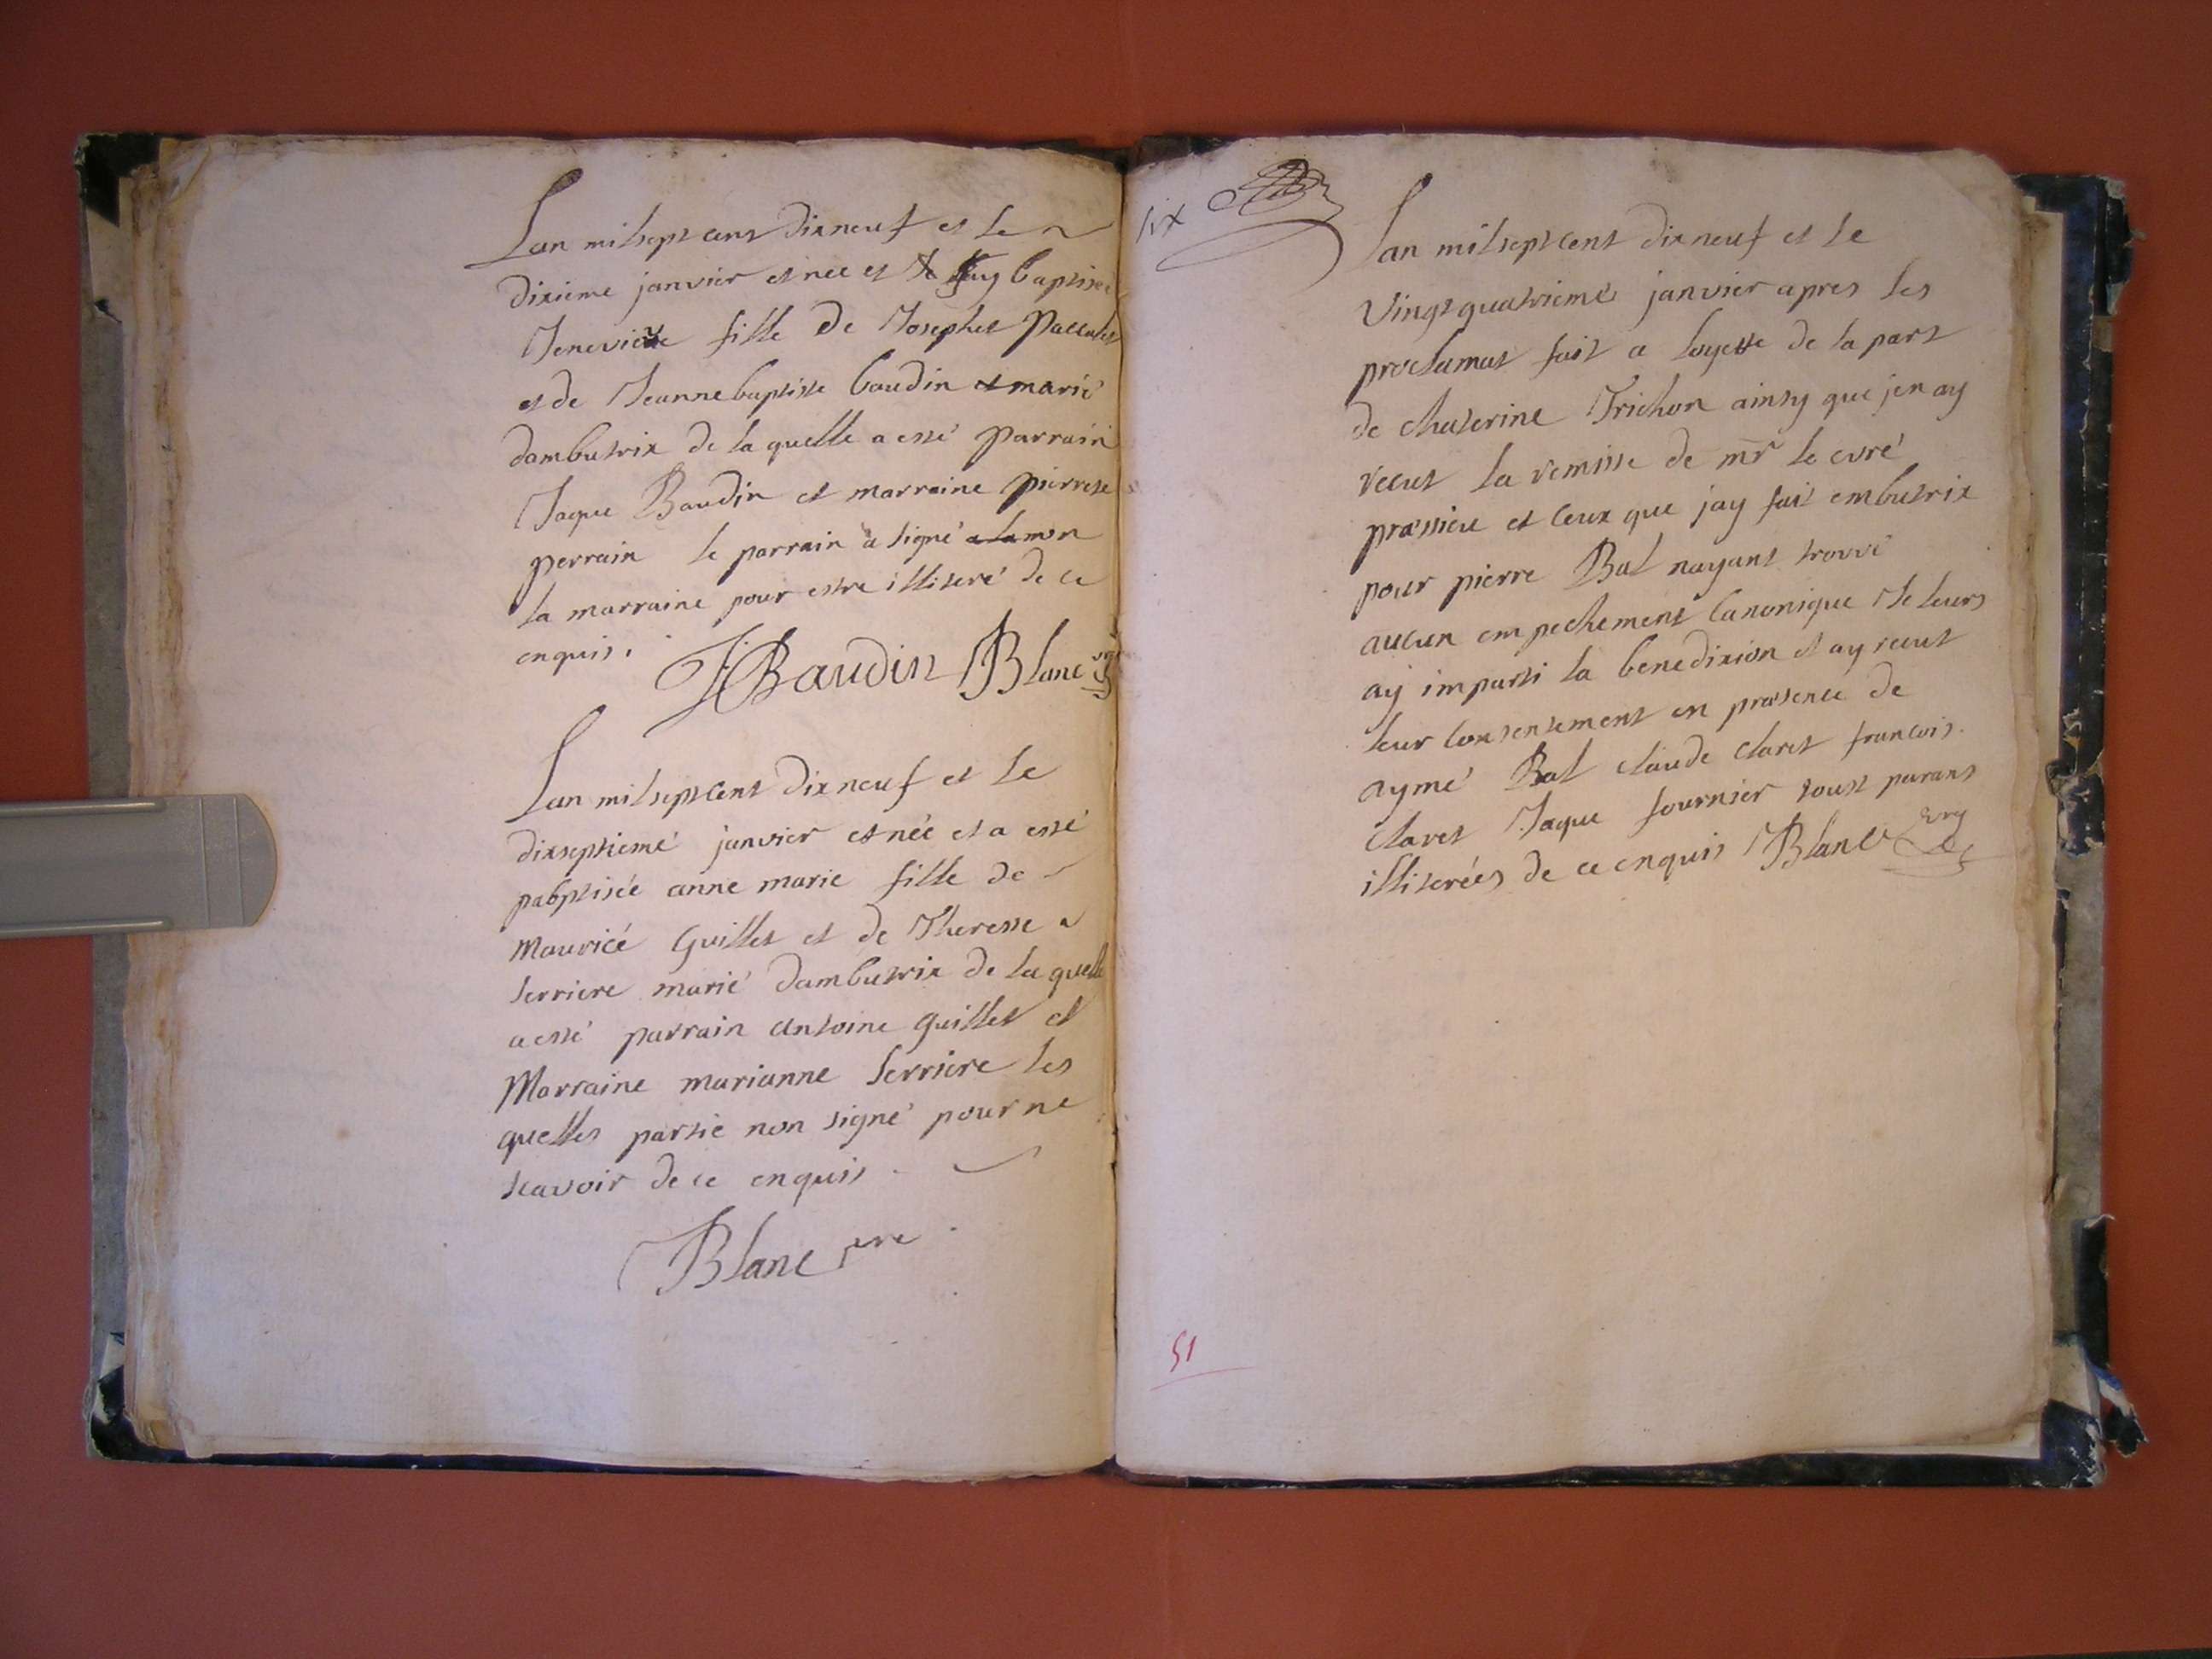 Lan mil sept cent dixneuf et le
dixieme janvier et nee et baptisée
Jenevieve fille de Josephet Paccalet
et de Jeanne baptiste baudin et marié
dambutrix de la quelle a esté parrain
Jaque Baudin et marraine pierrete
perrain le parrain a signé a la mon
la marraine pour estre illiteré de ce
enquis.
J Baudin Blanc
Lan mil sept cent dixneuf et le
dixseptiemé janvier et née et a esté
pabptisée anne marie fille de
mauricé Guillet et de Theresse
serriere marié dambutrix de la quelle
a esté parrain antoine guillet et
Marraine marianne serriere les
quelles partie non signé pour ne
scavoir de ce enquis
Blanc
six
Lan mil sept cent dixneuf et le
vingt quatriemé janvier apres les
proclamat fait a loyette de la part
de chaterine Trichon ainsy que jen ay
recut la remisse de mr le curé
præssieu et ceux que jay fait embutrix
pour pierre Bal nayant trouvé
aucun empechement Canonique Je leurs
ay imparti la benedixion et ay recut
leur Consentement en præsence de
aymé Bal claude claret francois
claret Jaque fournier tous parans
illiterées de ce enquis Blanc
51